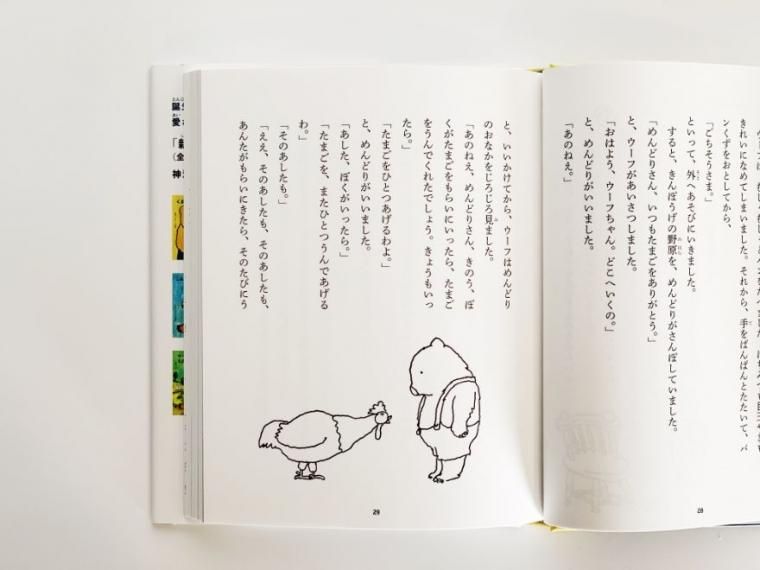 きれいになめてしまいました。それから、手をぱんぱんとたたいて、パ
ンくずをおとしてから、
「ごちそうさま。」
といって、外へあそびにいきました。
すると、きんぽうげの野原を、めんどりがさんぽしていました。
「めんどりさん、いつもたまごをありがとう。」
と、ウーフがあいさつしました。
「おはよう、ウーフちゃん。どこへいくの。」
と、めんどりがいいました。
「あのねえ。」
28
と、いいかけてから、ウーフはめんどり
のおなかをじろじろ見ました。
「あのねえ、めんどりさん、きのう、ぼ
くがたまごをもらいにいったら、たまご
をうんでくれたでしょう。きょうもいっ
たら。」
「たまごをひとつあげるわよ。」
と、めんどりがいいました。
「あした、ぼくがいったら。」
「たまごを、またひとつうんであげる
わ。」
「そのあしたも。」
「ええ、そのあしたも、そのあしたも、
あんたがもらいにきたら、そのたびにう
29